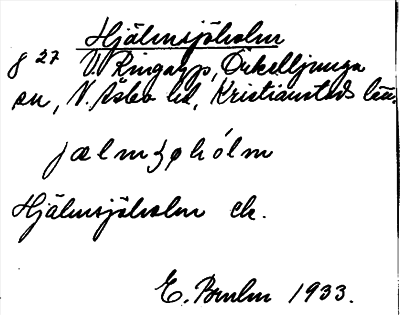 Hjälmsjöholm
8 27 V. Ringarp, Örkelljunga
sn, N. Åsbo hd, Kristianstads län.
jælmʒøhólm
Hjälmsjöholm ek.
E. 1933.